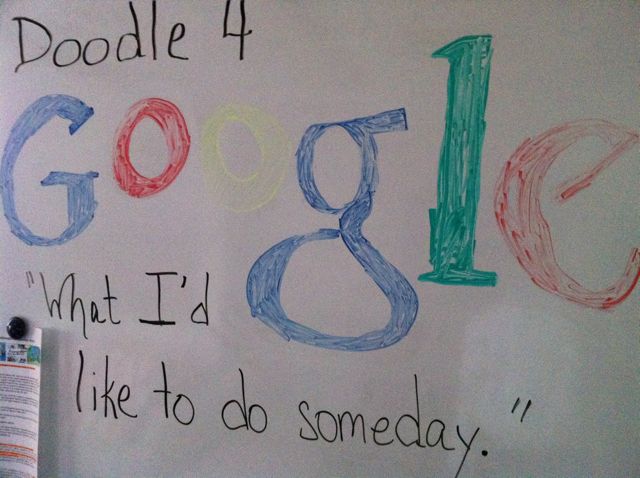 Doodle 4
Google
"What I'd
like to do someday."